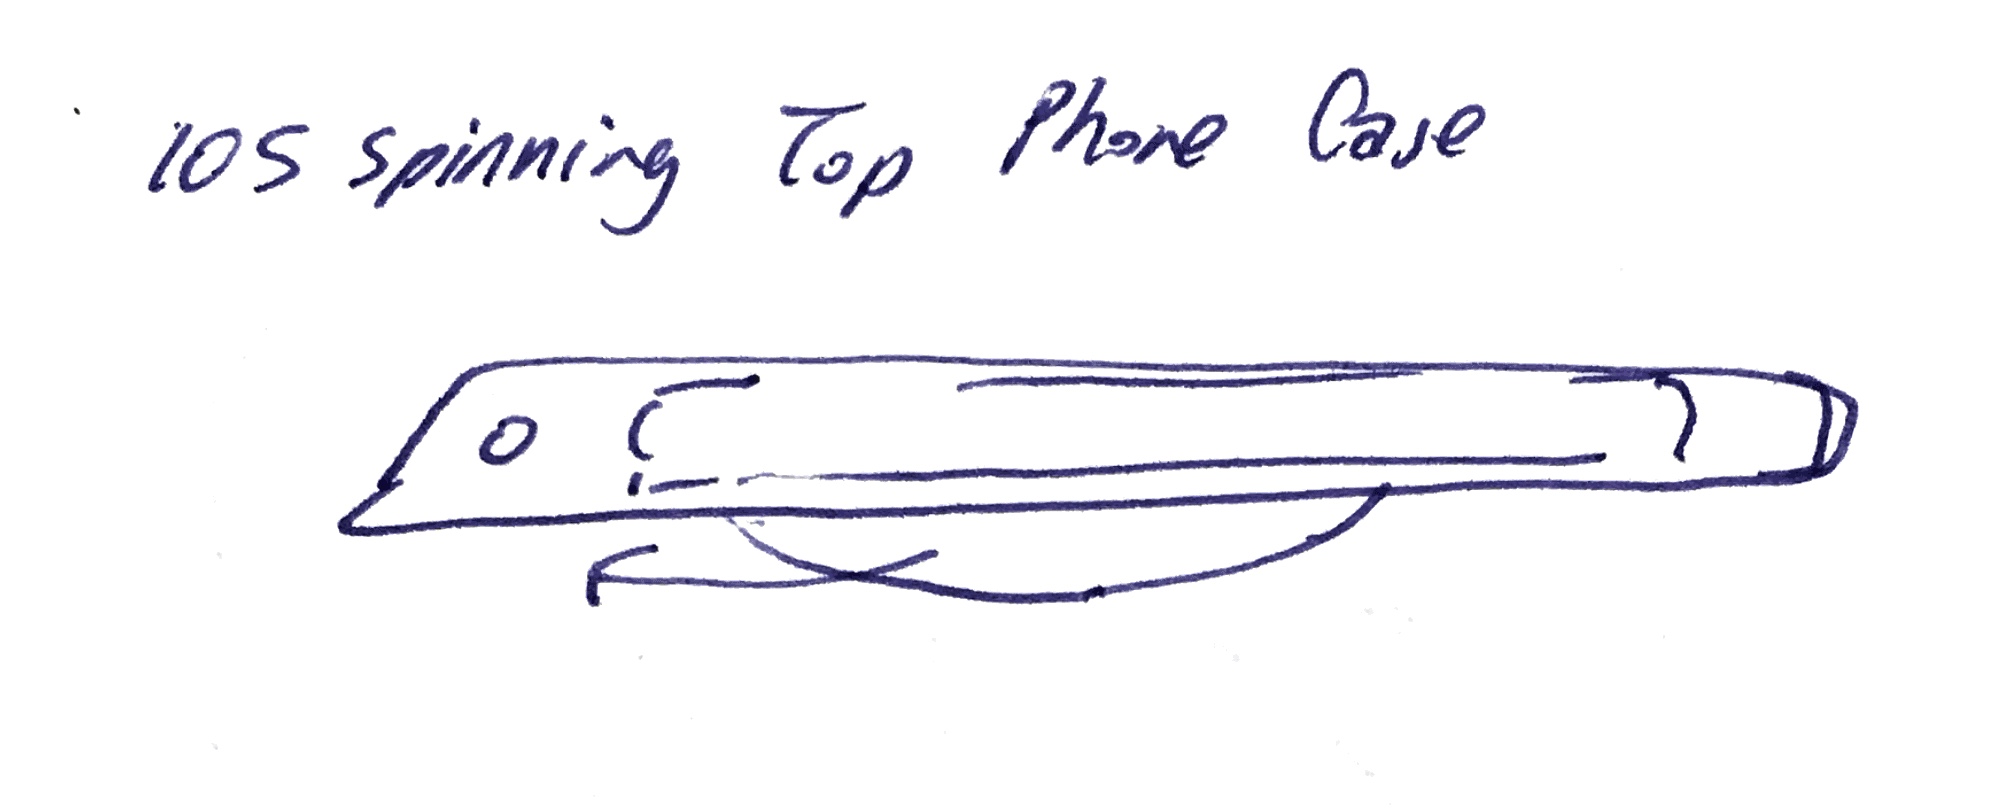 iOS Spinning Top Phone Case